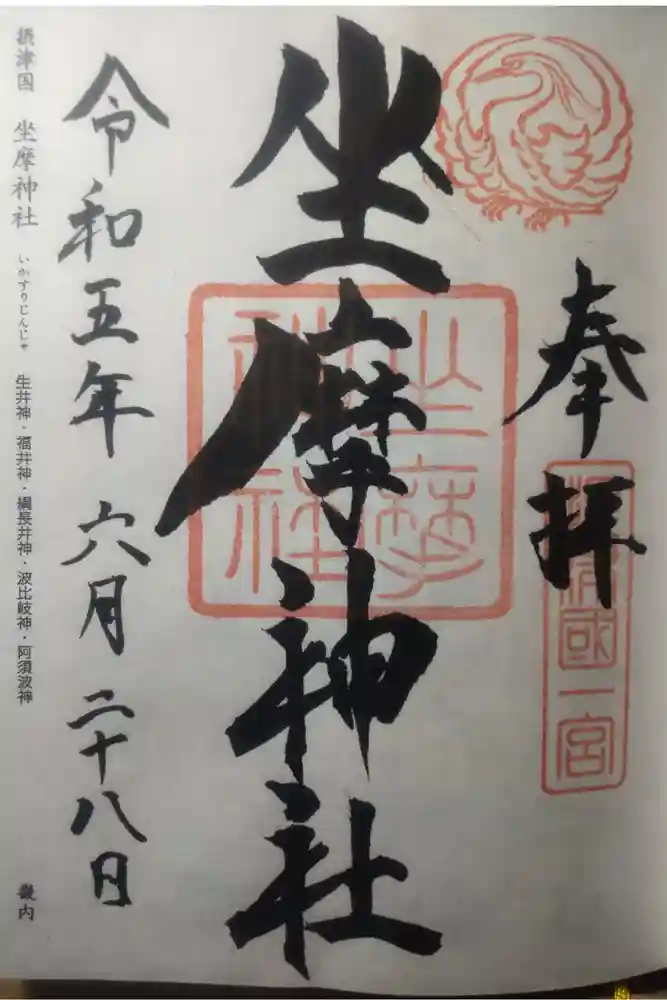 奉拝
攝津國一宮
坐摩神社
坐摩神社
令和五年 六月 二十八日
摂津国 坐摩神社 いかすりじんじゃ 生井神・福井神・綱長井神・波比岐神・阿須波神 畿内